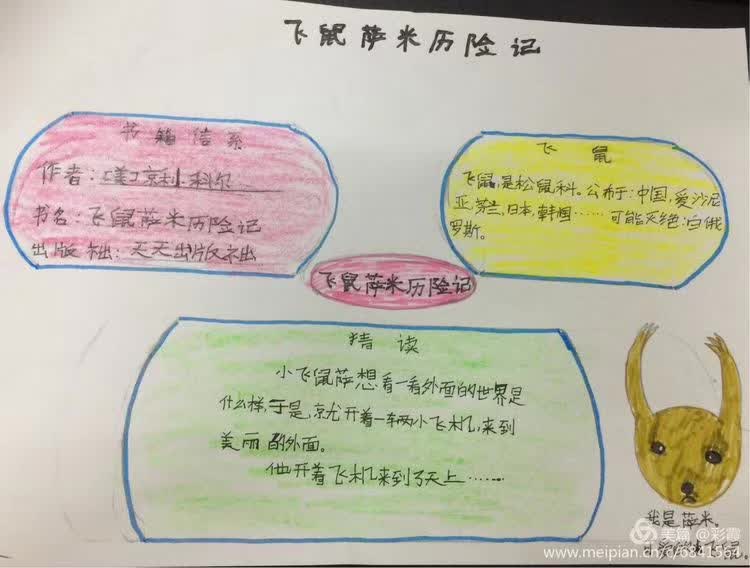 飞鼠萨米历险记
书籍信系
作者:[美]京利科尔
书名:飞鼠萨米历险记
出版社:天天出版社出
飞鼠
飞鼠,是松鼠科。公布于:中国,爱沙尼
亚,芬兰,日本,韩国……可能灭绝:白俄
罗斯。
飞鼠萨米历险记
猜读
小飞鼠萨想看一看外面的世界是
什么样,于是,京尤开着一车两小飞机,来到
美丽的外面。
他开着飞机来到了天上……
我是萨米。
美篇 @彩霞
www.meipian.cn/c/6841564